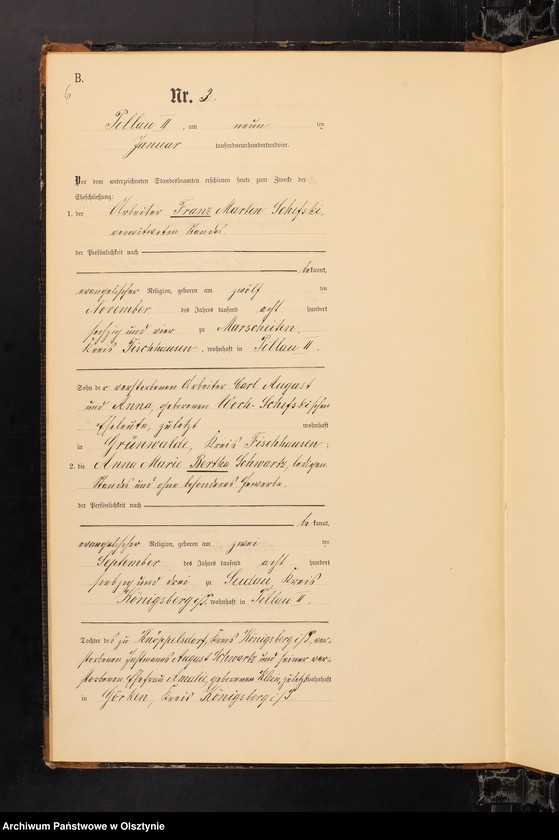 B.
6
Nr. 3.
Pillau II, am neun ten
Januar tausendneunhundertundvier.
Vor dem unterzeichneten Standesbeamten erschienen heute zum Zwecke der
Eheschließung:
1. der Arbeiter Franz Martin Schefski,
verwitweten Standes.
der Persönlichkeit nach
be kannt,
evangelischer Religion, geboren am zwölf ten
November des Jahres tausend acht hundert
sechzig und vier zu Marscheiten,
Kreis Fischhausen, wohnhaft in Pillau II.
Sohn der verstorbenen Arbeiter Carl August
und Anna, geborenen Woch-Schefski'schen
Eheleute, zuletzt wohnhaft
in Grünwalde, Kreis Fischhausen;
2. die Anna Marie Bertha Schwartz, ledigen
Standes und ohne besonderes Gewerbe.
der Persönlichkeit nach
be kannt,
evangelischer Religion, geboren am zwei ten
September des Jahres tausend acht hundert
siebzig und drei zu Seudau, Kreis
Königsberg i/P. wohnhaft in Pillau II.
Tochter des zu Knöppelsdorf, Kreis Königsberg i/P, ver-
storbenen Instmanns August Schwartz und seiner ver-
storbenen Ehefrau Amalie, geborenen Klein, zuletzt wohnhaft
in Görken, Kreis Königsberg i/P.
Archiwum Państwowe w Olsztynie